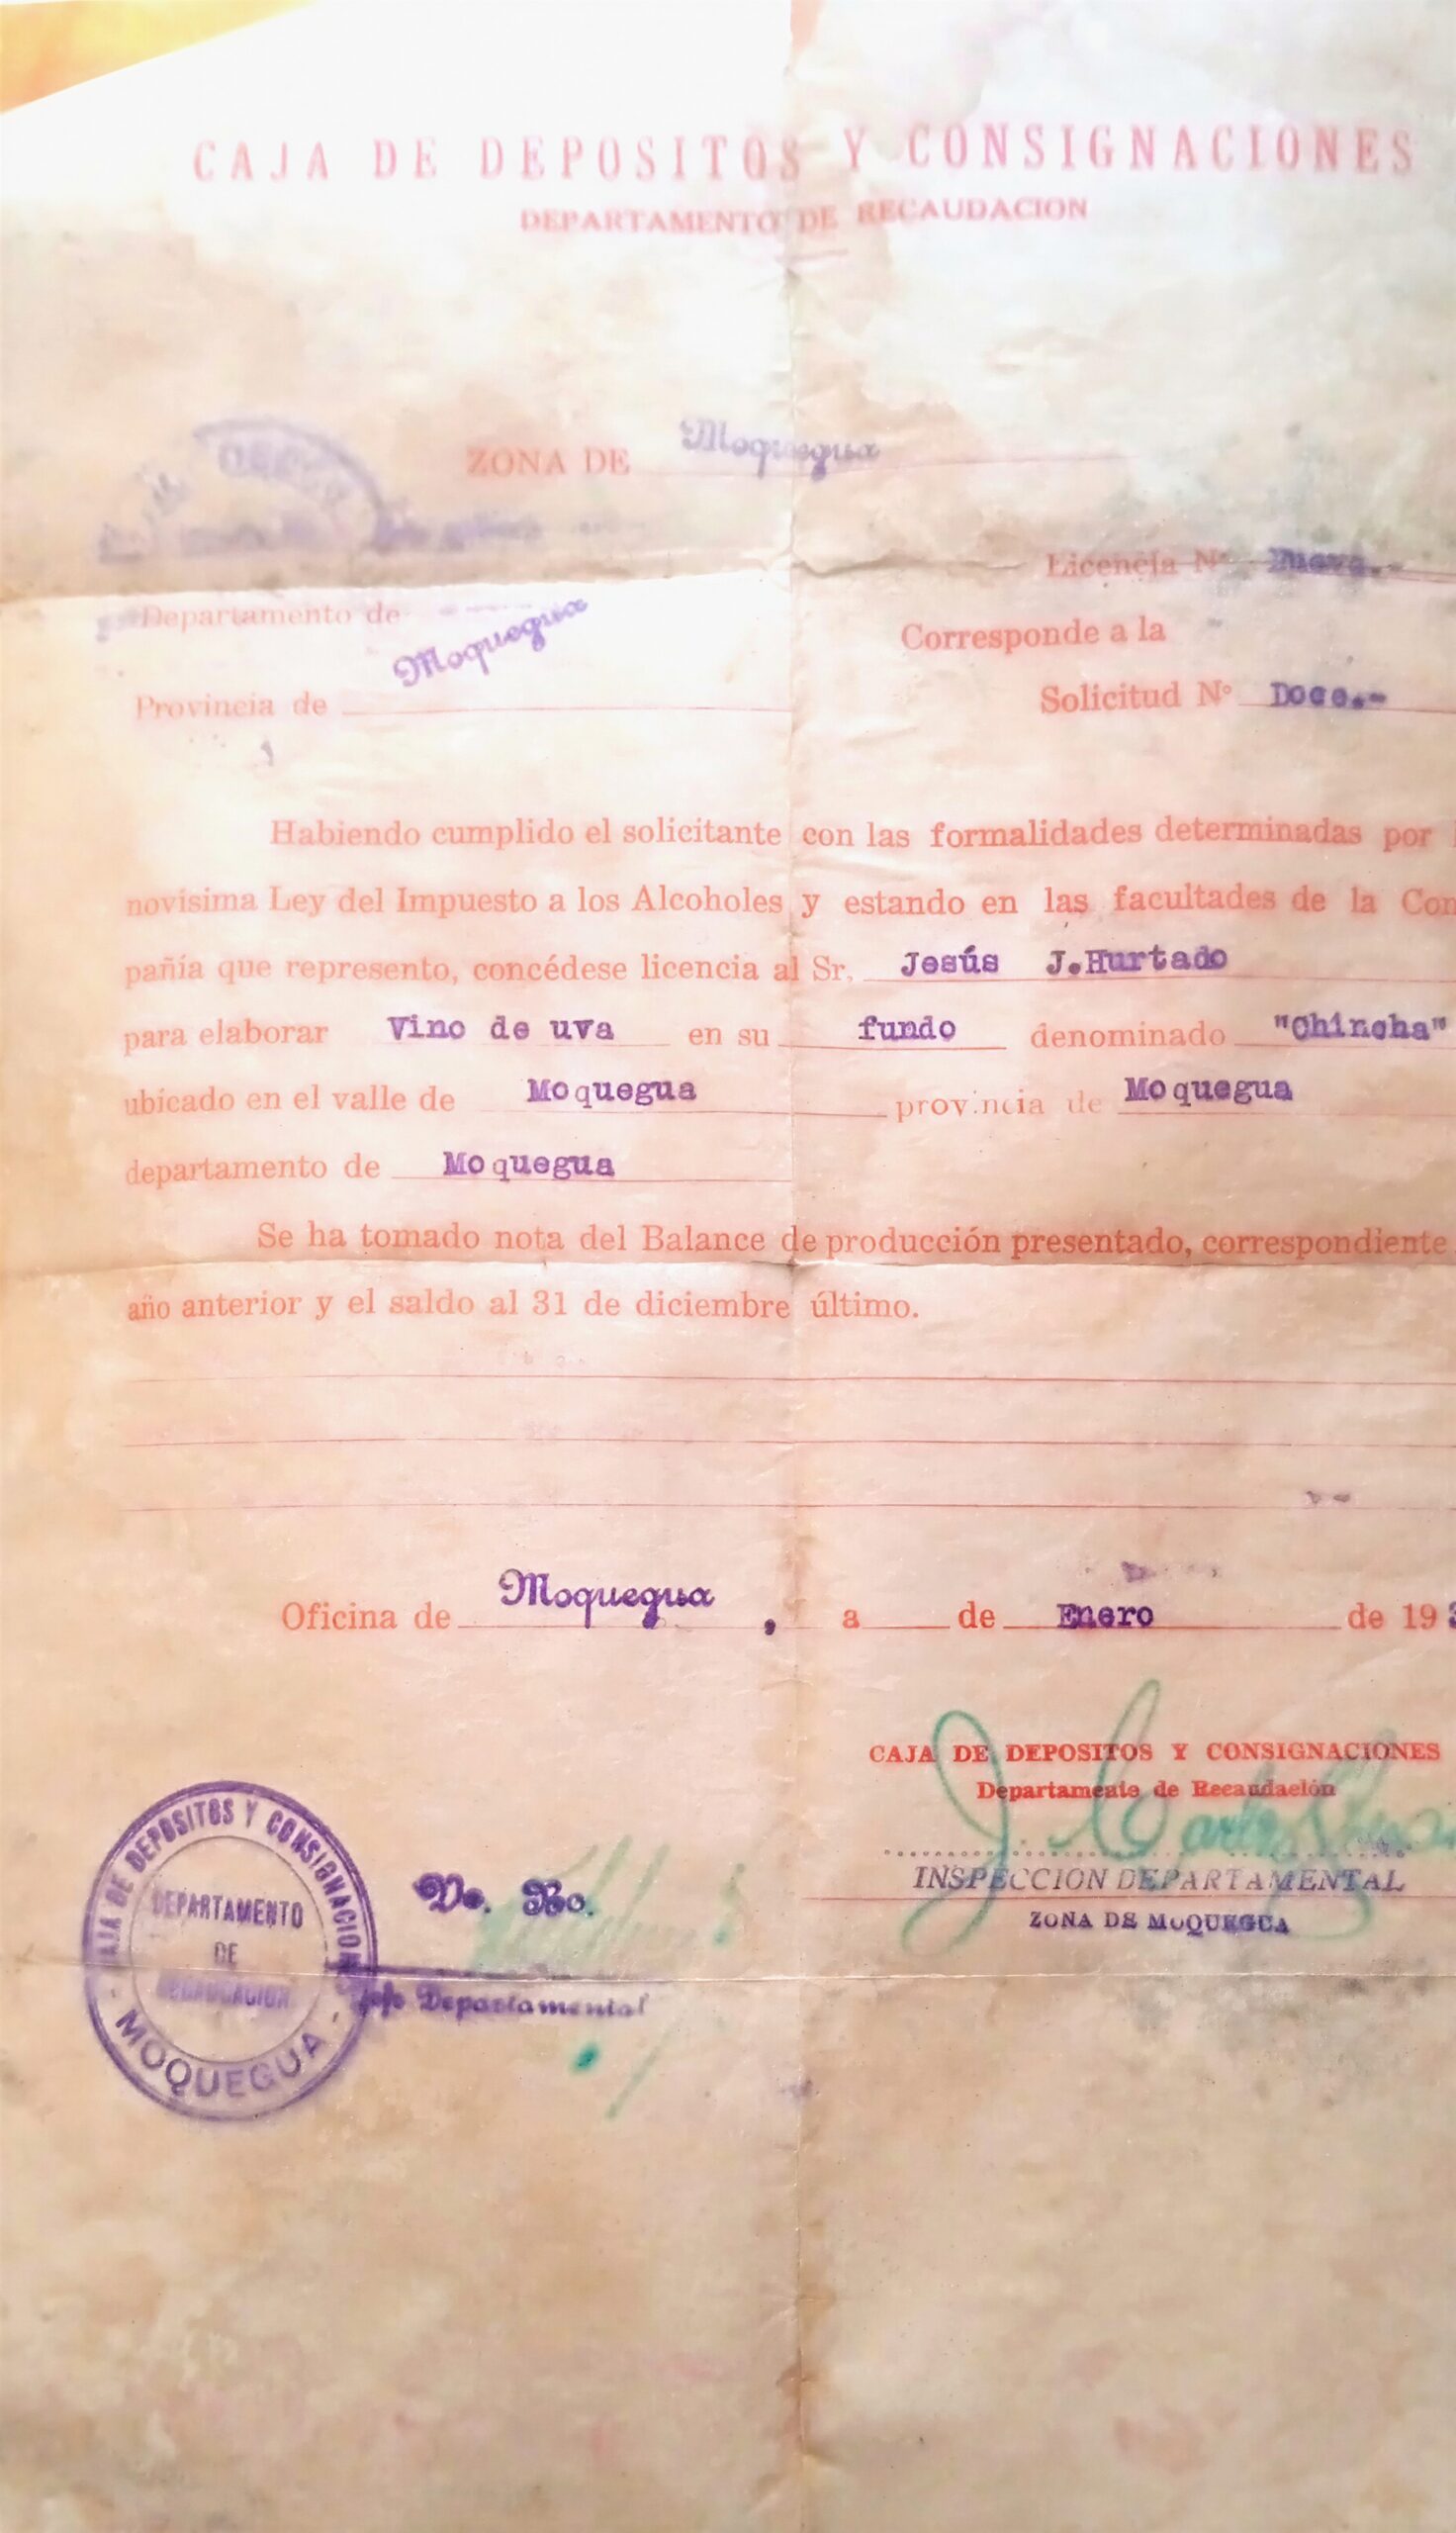 CAJA DE DEPOSITOS Y CONSIGNACIONES
DEPARTAMENTO DE RECAUDACION
ZONA DE Moquegua
Licencia Nº
Departamento de
Moquegua
Corresponde a la
Provincia de
Solicitud Nº Doce.-
Habiendo cumplido el solicitante con las formalidades determinadas por
novísima Ley del Impuesto a los Alcoholes y estando en las facultades de la Com
pañía que represento, concédese licencia al Sr. Jesús J.Hurtado
para elaborar Vino de uva en su fundo denominado "Chincha"
ubicado en el valle de Moquegua provincia de Moquegua
departamento de Moquegua
Se ha tomado nota del Balance de producción presentado, correspondiente
año anterior y el saldo al 31 de diciembre último.
Oficina de Moquegua, a de Enero de 193
CAJA DE DEPOSITOS Y CONSIGNACIONES
Departamento de Recaudación
INSPECCION DEPARTAMENTAL
ZONA DE MOQUEGUA
CAJA DE DEPOSITOS Y CONSIGNACIONES
DEPARTAMENTO
DE
RECAUDACION
- MOQUEGUA -
Vo. Bo.
Jefe Departamental